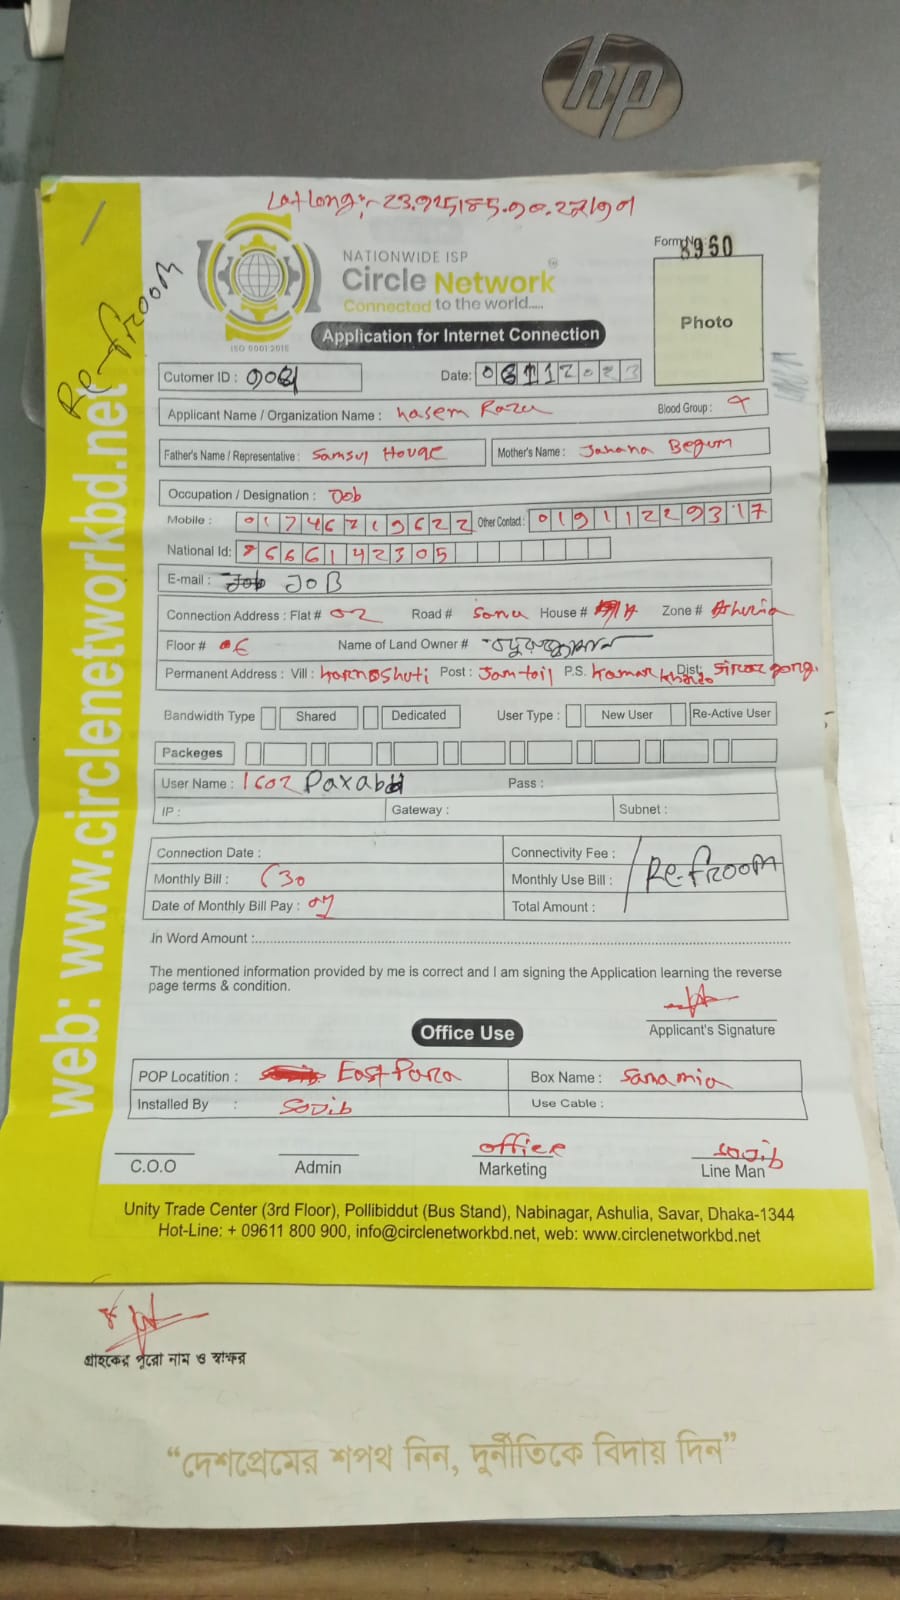 hp
Lat Long:-
NATIONWIDE ISP
Circle Network
Connected to the world.....
ISO 9001:2015
Form No: 8960
Photo
Re-froom
Application for Internet Connection
Cutomer ID :
Date:
Applicant Name / Organization Name : hasem Razu
Blood Group :
Father's Name / Representative : Samsul Houqe
Mother's Name : Jahana Begum
Occupation / Designation : Job
Mobile : 01746219622 Other Contact : 01911229317
National Id: 8666142305
E-mail : JoB
Connection Address : Flat # 02 Road # Sonu House # Zone # Ashulia
Floor # Name of Land Owner #
Permanent Address : Vill : Post : Jamtoil P.S. Kamar khando Dist:
Bandwidth Type Shared Dedicated User Type : New User Re-Active User
Packeges
User Name : Pass :
IP : Gateway : Subnet :
Connection Date : Connectivity Fee :
Monthly Bill : 630 Monthly Use Bill : Re-froom
Date of Monthly Bill Pay : Total Amount :
In Word Amount :
The mentioned information provided by me is correct and I am signing the Application learning the reverse
page terms & condition.
Applicant's Signature
Office Use
POP Locatition : East Para Box Name : Sanamia
Installed By : Sojib Use Cable :
office sojib
C.O.O Admin Marketing Line Man
Unity Trade Center (3rd Floor), Pollibiddut (Bus Stand), Nabinagar, Ashulia, Savar, Dhaka-1344
Hot-Line: + 09611 800 900, info@circlenetworkbd.net, web: www.circlenetworkbd.net
web: www.circlenetworkbd.net
গ্রাহকের পুরো নাম ও স্বাক্ষর
“দেশপ্রেমের শপথ নিন, দুর্নীতিকে বিদায় দিন”